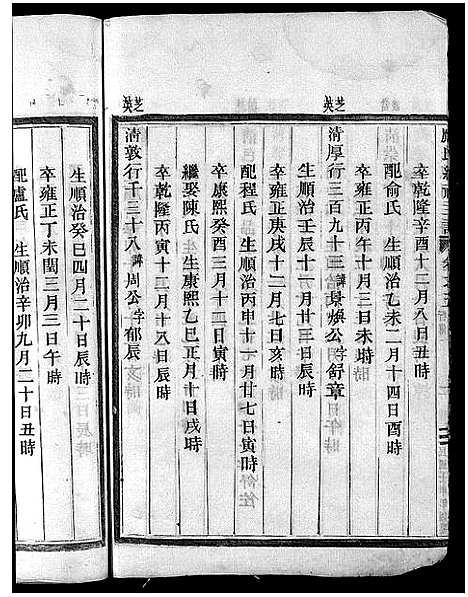 卒乾隆辛酉十二月八日丑時
配俞氏 生順治乙未二月十四日酉時
卒雍正丙午十月三日未時
芝英
清厚行三百九十三諱景煥公字舒章
生順治壬辰十一月廿三日辰時
卒雍正庚戌十二月七日亥時
配程氏 生順治丙申十一月廿七日寅時
卒康熙癸酉三月十二日寅時
繼娶陳氏 生康熙乙巳正月十日戌時
卒乾隆丙寅十二月十八日辰時
芝英
清敦行千三十八諱周公字郁辰
生順治癸巳四月二十日辰時
卒雍正丁未閏三月三日午時
配盧氏 生順治辛卯九月二十日丑時